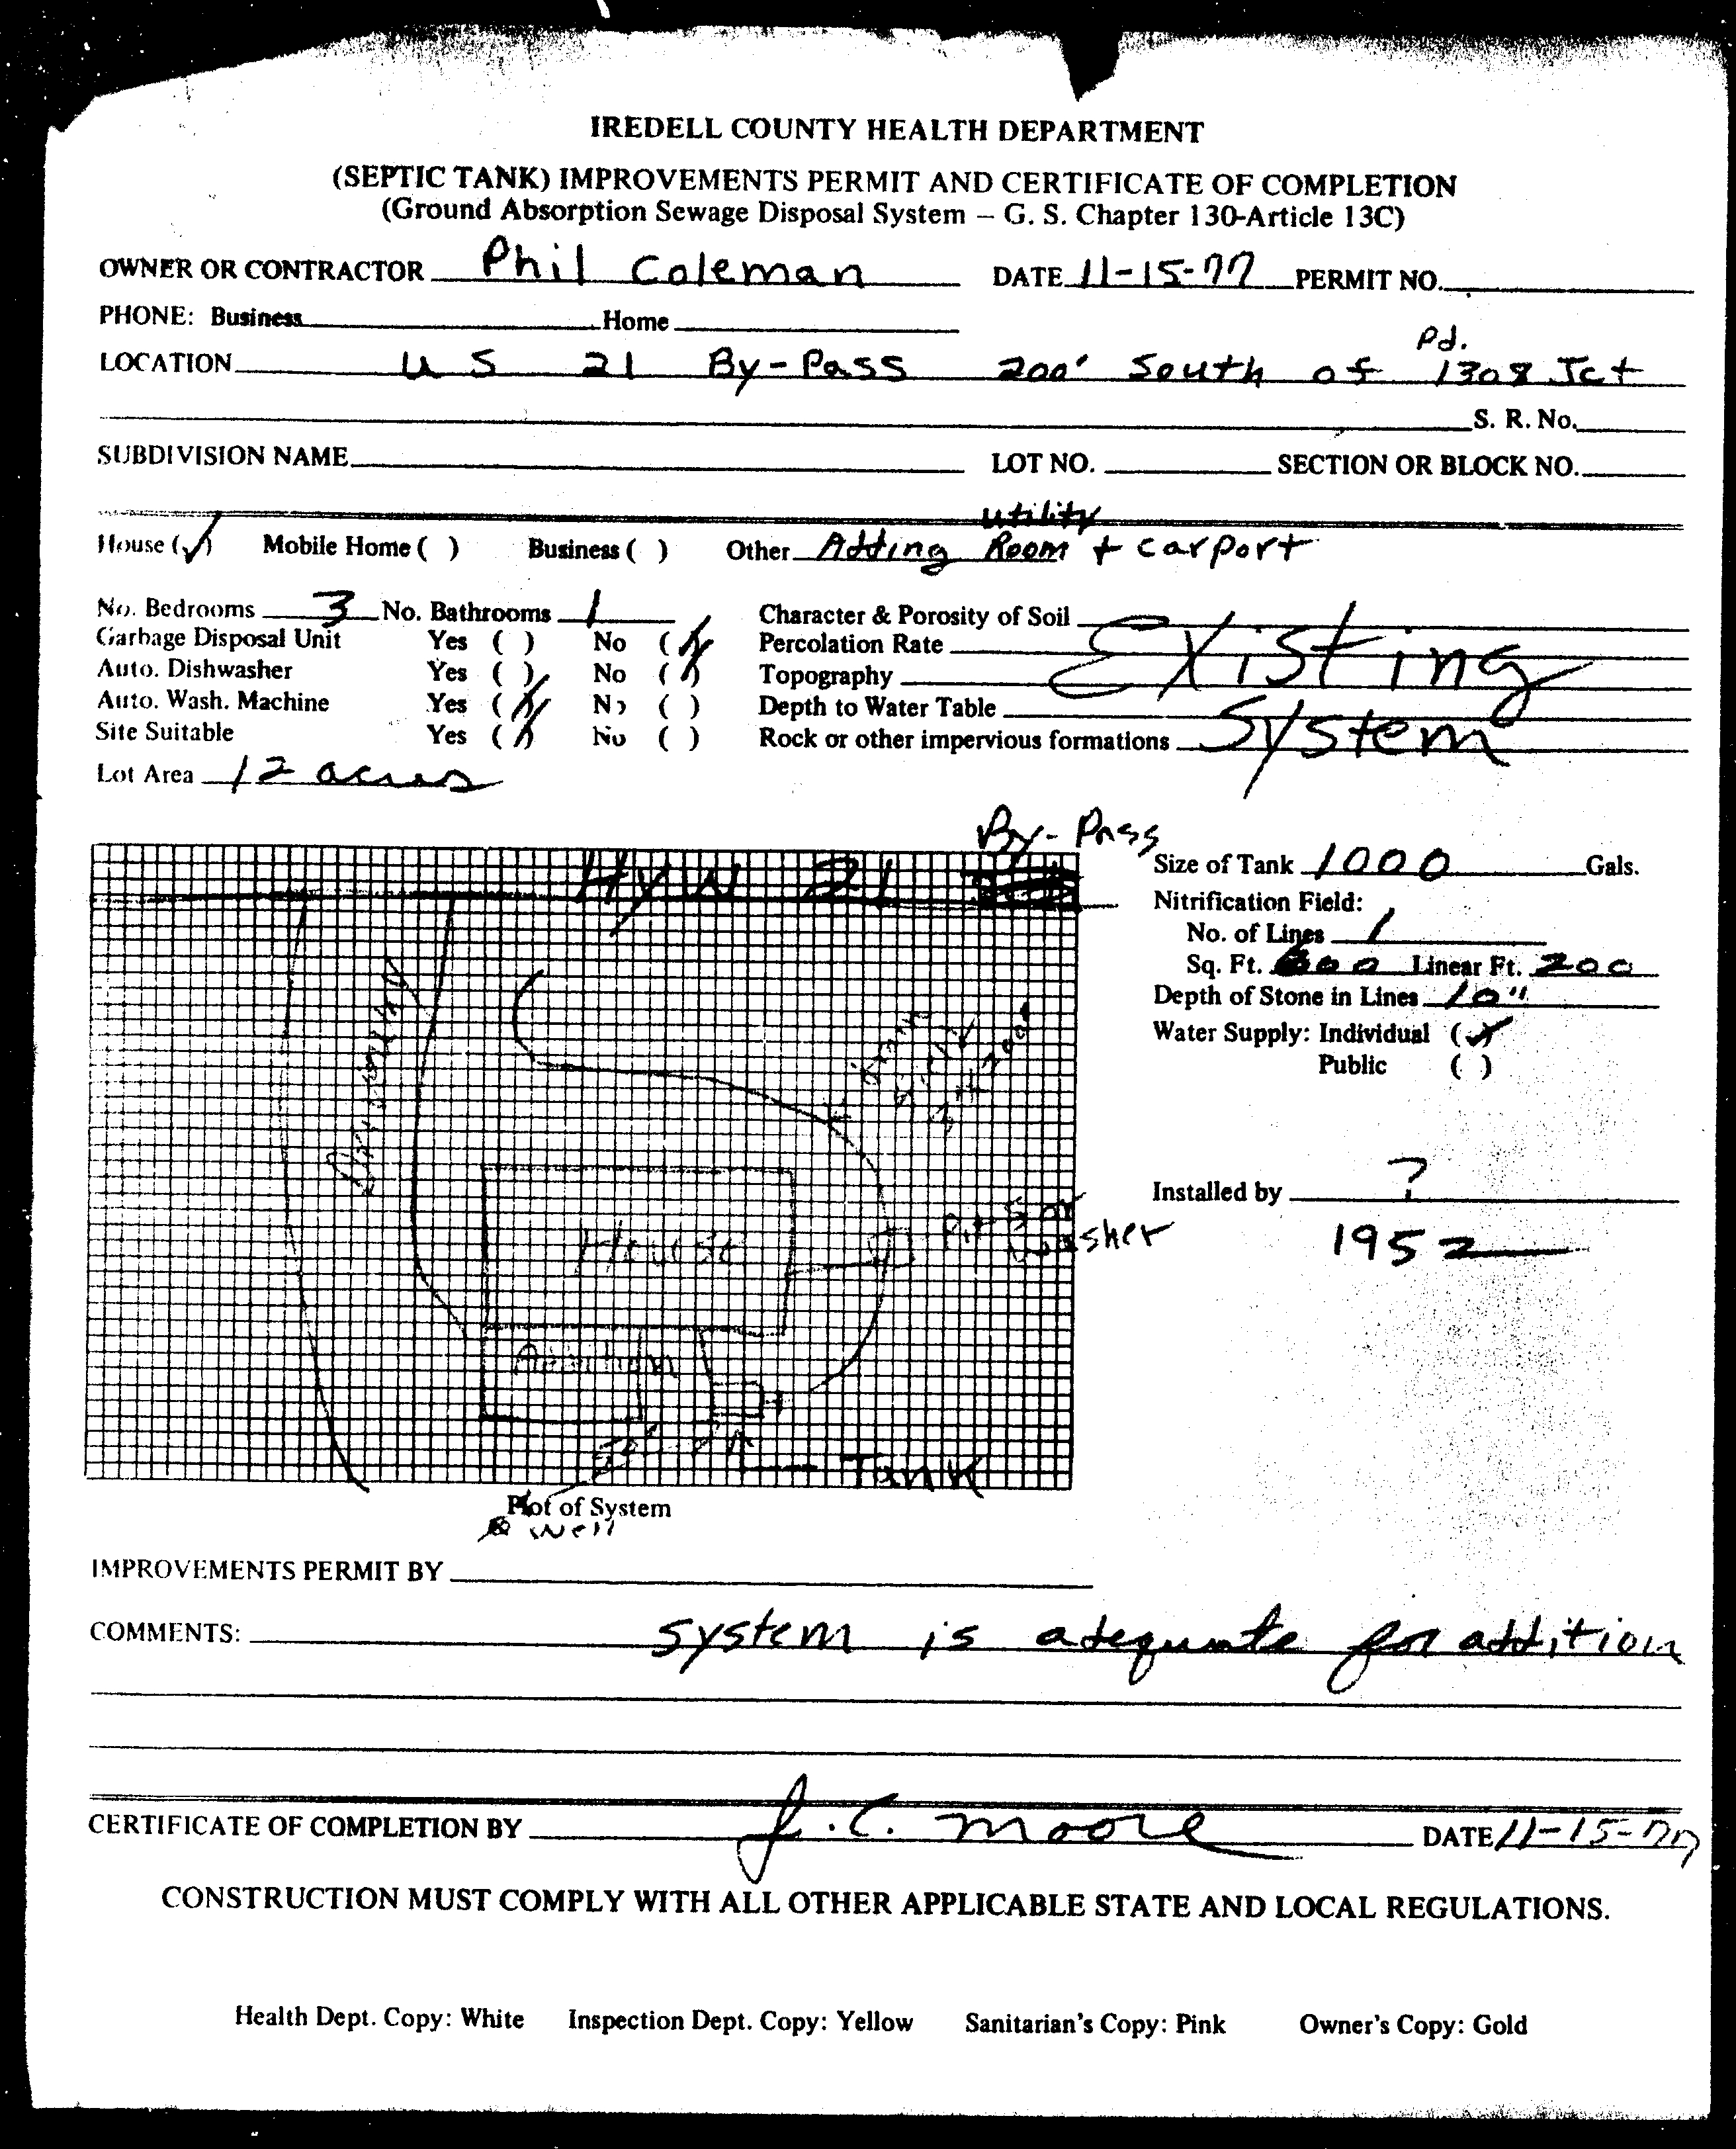 IREDELL COUNTY HEALTH DEPARTMENT
(SEPTIC TANK) IMPROVEMENTS PERMIT AND CERTIFICATE OF COMPLETION
(Ground Absorption Sewage Disposal System – G. S. Chapter 130-Article 13C)
OWNER OR CONTRACTOR Phil Coleman DATE 11-15-77 PERMIT NO.
PHONE: Business Home
Pd.
LOCATION US 21 By-Pass 200' South of 1308 Jct
S. R. No.
SUBDIVISION NAME LOT NO. SECTION OR BLOCK NO.
utility
House (✓) Mobile Home ( ) Business ( ) Other Adding Room + carport
No. Bedrooms 3 No. Bathrooms 1 Character & Porosity of Soil
Garbage Disposal Unit Yes ( ) No (✓) Percolation Rate Existing
Auto. Dishwasher Yes ( ) No (✓) Topography
Auto. Wash. Machine Yes (✓) No ( ) Depth to Water Table
Site Suitable Yes (✓) No ( ) Rock or other impervious formations System
Lot Area 12 acres
By-Pass
Hyw 21
Size of Tank 1000 Gals.
Nitrification Field:
No. of Lines 1
Sq. Ft. 600 Linear Ft. 200
Depth of Stone in Lines 10"
Water Supply: Individual (✓)
Public ( )
Driveway
House
Pit for
Washer
Addition
50'
Tank
Installed by ?
1952
Plot of System
Well
IMPROVEMENTS PERMIT BY
COMMENTS: system is adequate for addition
CERTIFICATE OF COMPLETION BY J. C. Moore DATE 11-15-77
CONSTRUCTION MUST COMPLY WITH ALL OTHER APPLICABLE STATE AND LOCAL REGULATIONS.
Health Dept. Copy: White Inspection Dept. Copy: Yellow Sanitarian's Copy: Pink Owner's Copy: Gold